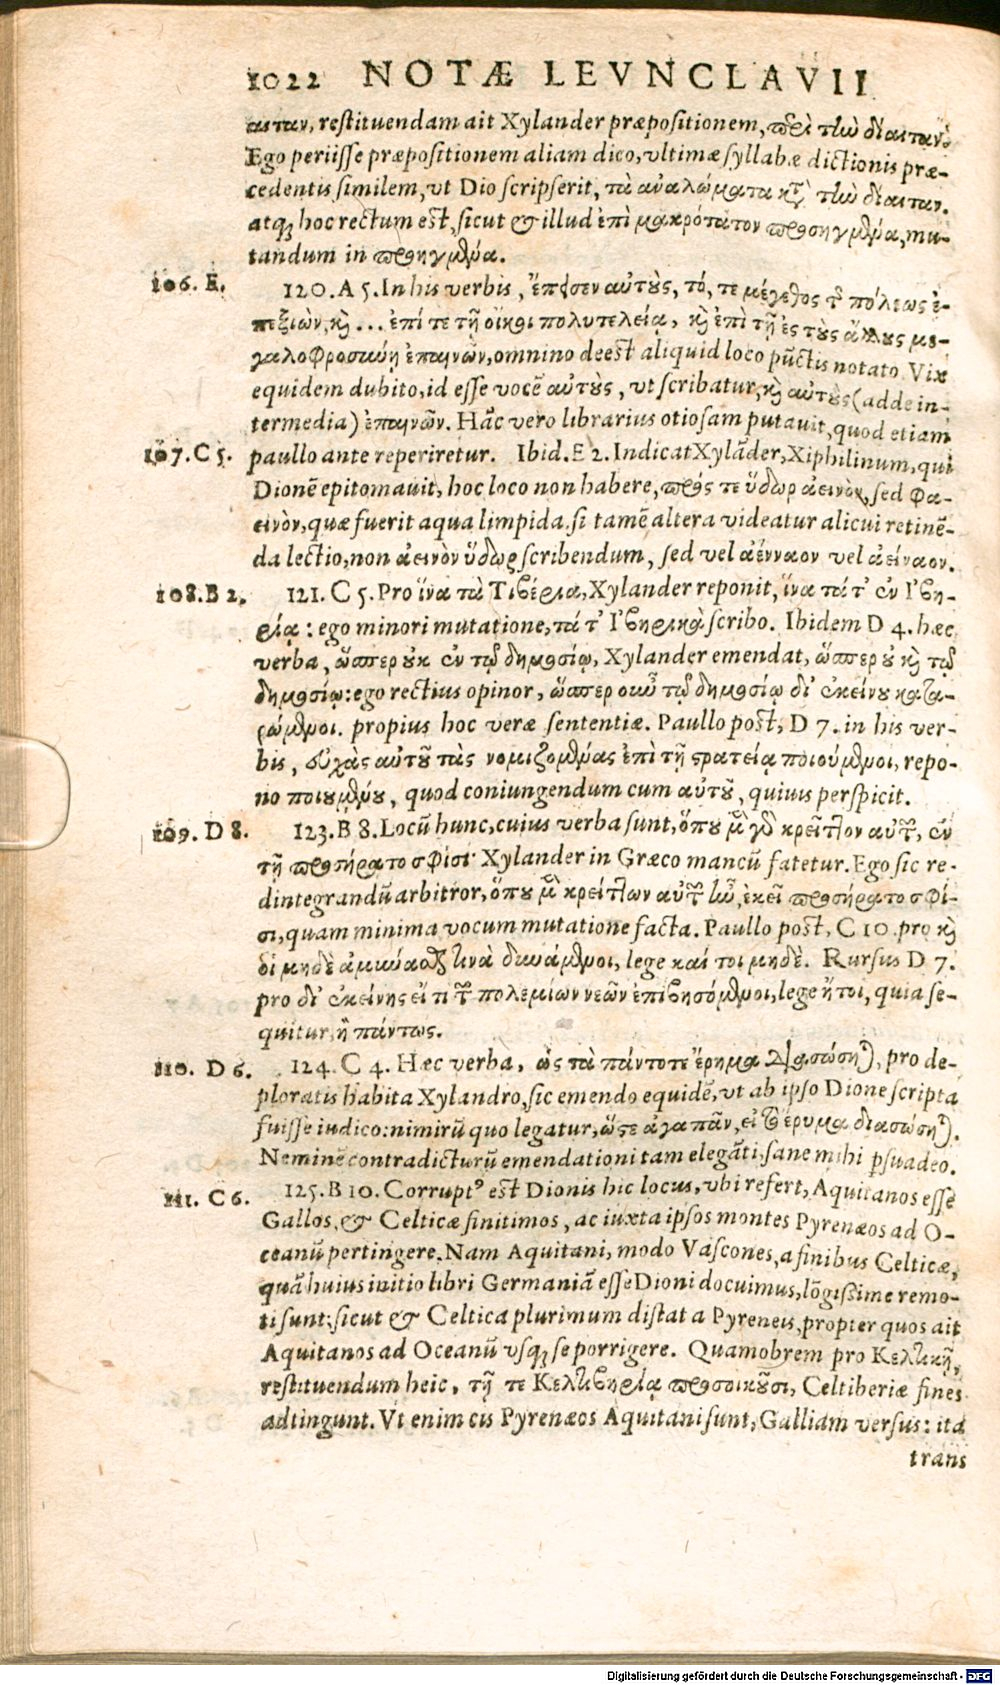 1022 NOTÆ LEVNCLAVII
αιταν, restituendam ait Xylander præpositionem, περὶ τὴν δίαιταν.
Ego periisse præpositionem aliam dico, vltimæ syllabæ dictionis præ-
cedentis similem, vt Dio scripserit, τὰ ἀναλώματα κτ τὴν δίαιταν.
atq; hoc rectum est, sicut & illud ἐπὶ μακρότατον προσηγμένα, mu-
tandum in προηγμένα.
106. E. 120. A 5. In his verbis, ἔπεισεν αὐτοὺς, τό, τε μέγεθος τῆς πόλεως ἐ-
πεξιὼν, καὶ ... ἐπί τε τῇ οἴκοι πολυτελείᾳ, καὶ ἐπὶ τῇ ἐς τοὺς ἄλλους με-
γαλοφροσύνῃ ἐπαινῶν, omnino deest aliquid loco pūctis notato. Vix
equidem dubito, id esse vocē αὐτοὺς, vt scribatur, καὶ αὐτοὺς (adde in-
termedia) ἐπαινῶν. Hāc vero librarius otiosam putauit, quod etiam
107. C 5. paullo ante reperiretur. Ibid. E 2. Indicat Xylāder, Xiphilinum, qui
Dionē epitomauit, hoc loco non habere, πρός τε ὕδωρ ἀεινὸν, sed φα-
εινὸν, quæ fuerit aqua limpida. si tamē altera videatur alicui retinē-
da lectio, non ἀεινὸν ὕδωρ scribendum, sed vel ἀένναον vel ἀείναον.
108. B 2. 121. C 5. Pro ἵνα τὰ Τιβέρια, Xylander reponit, ἵνα τά τ' ἐν Ἰβη-
ρίᾳ: ego minori mutatione, τά τ' Ἰβηρικὰ scribo. Ibidem D 4. hæc
verba, ὥσπερ οὐκ ἐν τῷ δημοσίῳ, Xylander emendat, ὥσπερ οὐ καὶ τῷ
δημοσίῳ: ego rectius opinor, ὥσπερ οὖν τῷ δημοσίῳ δι' ἐκείνου κατα-
ρώμενοι. propius hoc veræ sententiæ. Paullo post, D 7. in his ver-
bis, εὐχὰς αὐτοῦ τὰς νομιζομένας ἐπὶ τῇ στρατείᾳ ποιούμενοι, repo-
no ποιουμένου, quod coniungendum cum αὐτοῦ, quiuis perspicit.
109. D 8. 123. B 8. Locū hunc, cuius verba sunt, ὅπου μὲν γὰρ κρεῖττον αὐτῶν, ἐν
τῇ προσήρατο σφίσι· Xylander in Græco mancū fatetur. Ego sic re-
dintegrandū arbitror, ὅπου μὲν κρείττων αὐτῶν ἦν, ἐκεῖ προσήρατο σφί-
σι, quam minima vocum mutatione facta. Paullo post, C 10. pro καὶ
οἱ μηδὲ ἀμύναοθαί τινὰ δυνάμενοι, lege καί τοι μηδὲ. Rursus D 7.
pro δι' ἐκείνης εἴ τι τῶν πολεμίων νεῶν ἐπιβησόμενοι, lege ἤτοι, quia se-
quitur, ἢ πάντως.
110. D 6. 124. C 4. Hæc verba, ὡς τὰ πάντοτε ἔρημα διασώσηται, pro de-
ploratis habita Xylandro, sic emendo equidē, vt ab ipso Dione scripta
fuisse iudico: nimirū quo legatur, ὥστε ἀγαπᾶν, εἰ τὸ ἔρυμα διασώσηται.
Neminē contradicturū emendationi tam elegāti, sane mihi psuadeo.
111. C 6. 125. B 10. Corrupt⁹ est Dionis hic locus, vbi refert, Aquitanos esse
Gallos, & Celticæ finitimos, ac iuxta ipsos montes Pyrenæos ad O-
ceanū pertingere. Nam Aquitani, modo Vascones, a finibus Celticæ,
quā huius initio libri Germaniā esse Dioni docuimus, lōgissime remo-
ti sunt: sicut & Celtica plurimum distat a Pyreneis, propter quos ait
Aquitanos ad Oceanū vsq; se porrigere. Quamobrem pro Κελτικῇ,
restituendum heic, τῇ τε Κελτιβηρίᾳ προσοικοῦσι, Celtiberiæ fines
adtingunt. Vt enim cis Pyrenæos Aquitani sunt, Galliam versus: ita
trans
Digitalisierung gefördert durch die Deutsche Forschungsgemeinschaft - DFG